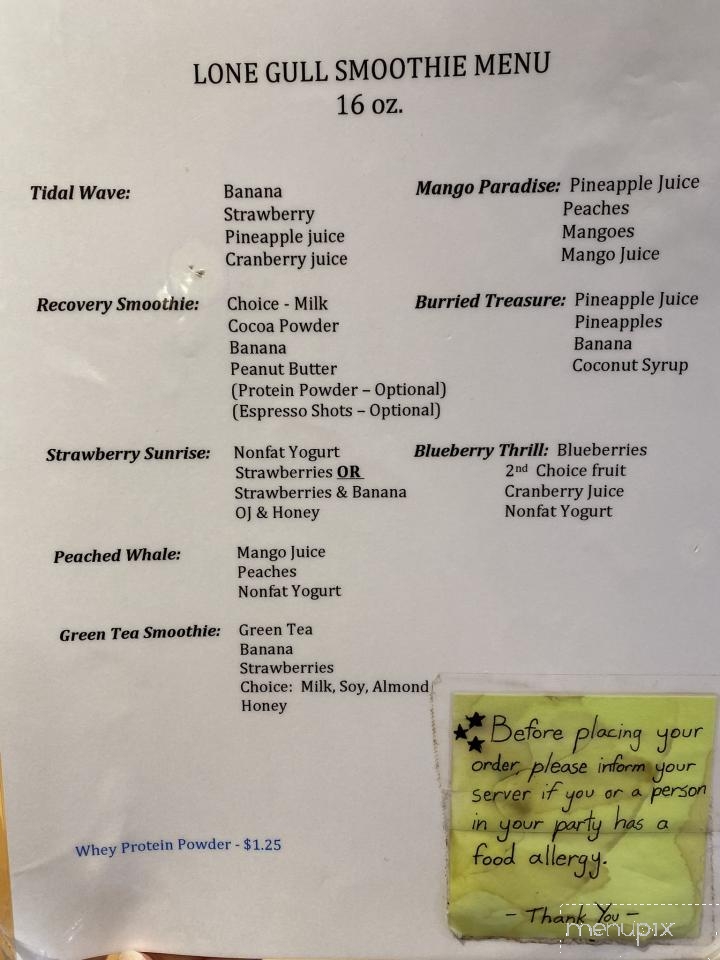 LONE GULL SMOOTHIE MENU
16 oz.
Tidal Wave: Banana
Strawberry
Pineapple juice
Cranberry juice
Recovery Smoothie: Choice - Milk
Cocoa Powder
Banana
Peanut Butter
(Protein Powder – Optional)
(Espresso Shots – Optional)
Strawberry Sunrise: Nonfat Yogurt
Strawberries OR
Strawberries & Banana
OJ & Honey
Peached Whale: Mango Juice
Peaches
Nonfat Yogurt
Green Tea Smoothie: Green Tea
Banana
Strawberries
Choice: Milk, Soy, Almond
Honey
Mango Paradise: Pineapple Juice
Peaches
Mangoes
Mango Juice
Burried Treasure: Pineapple Juice
Pineapples
Banana
Coconut Syrup
Blueberry Thrill: Blueberries
2nd Choice fruit
Cranberry Juice
Nonfat Yogurt
Whey Protein Powder - $1.25
Before placing your
order, please inform your
server if you or a person
in your party has a
food allergy.
- Thank You -
menupix